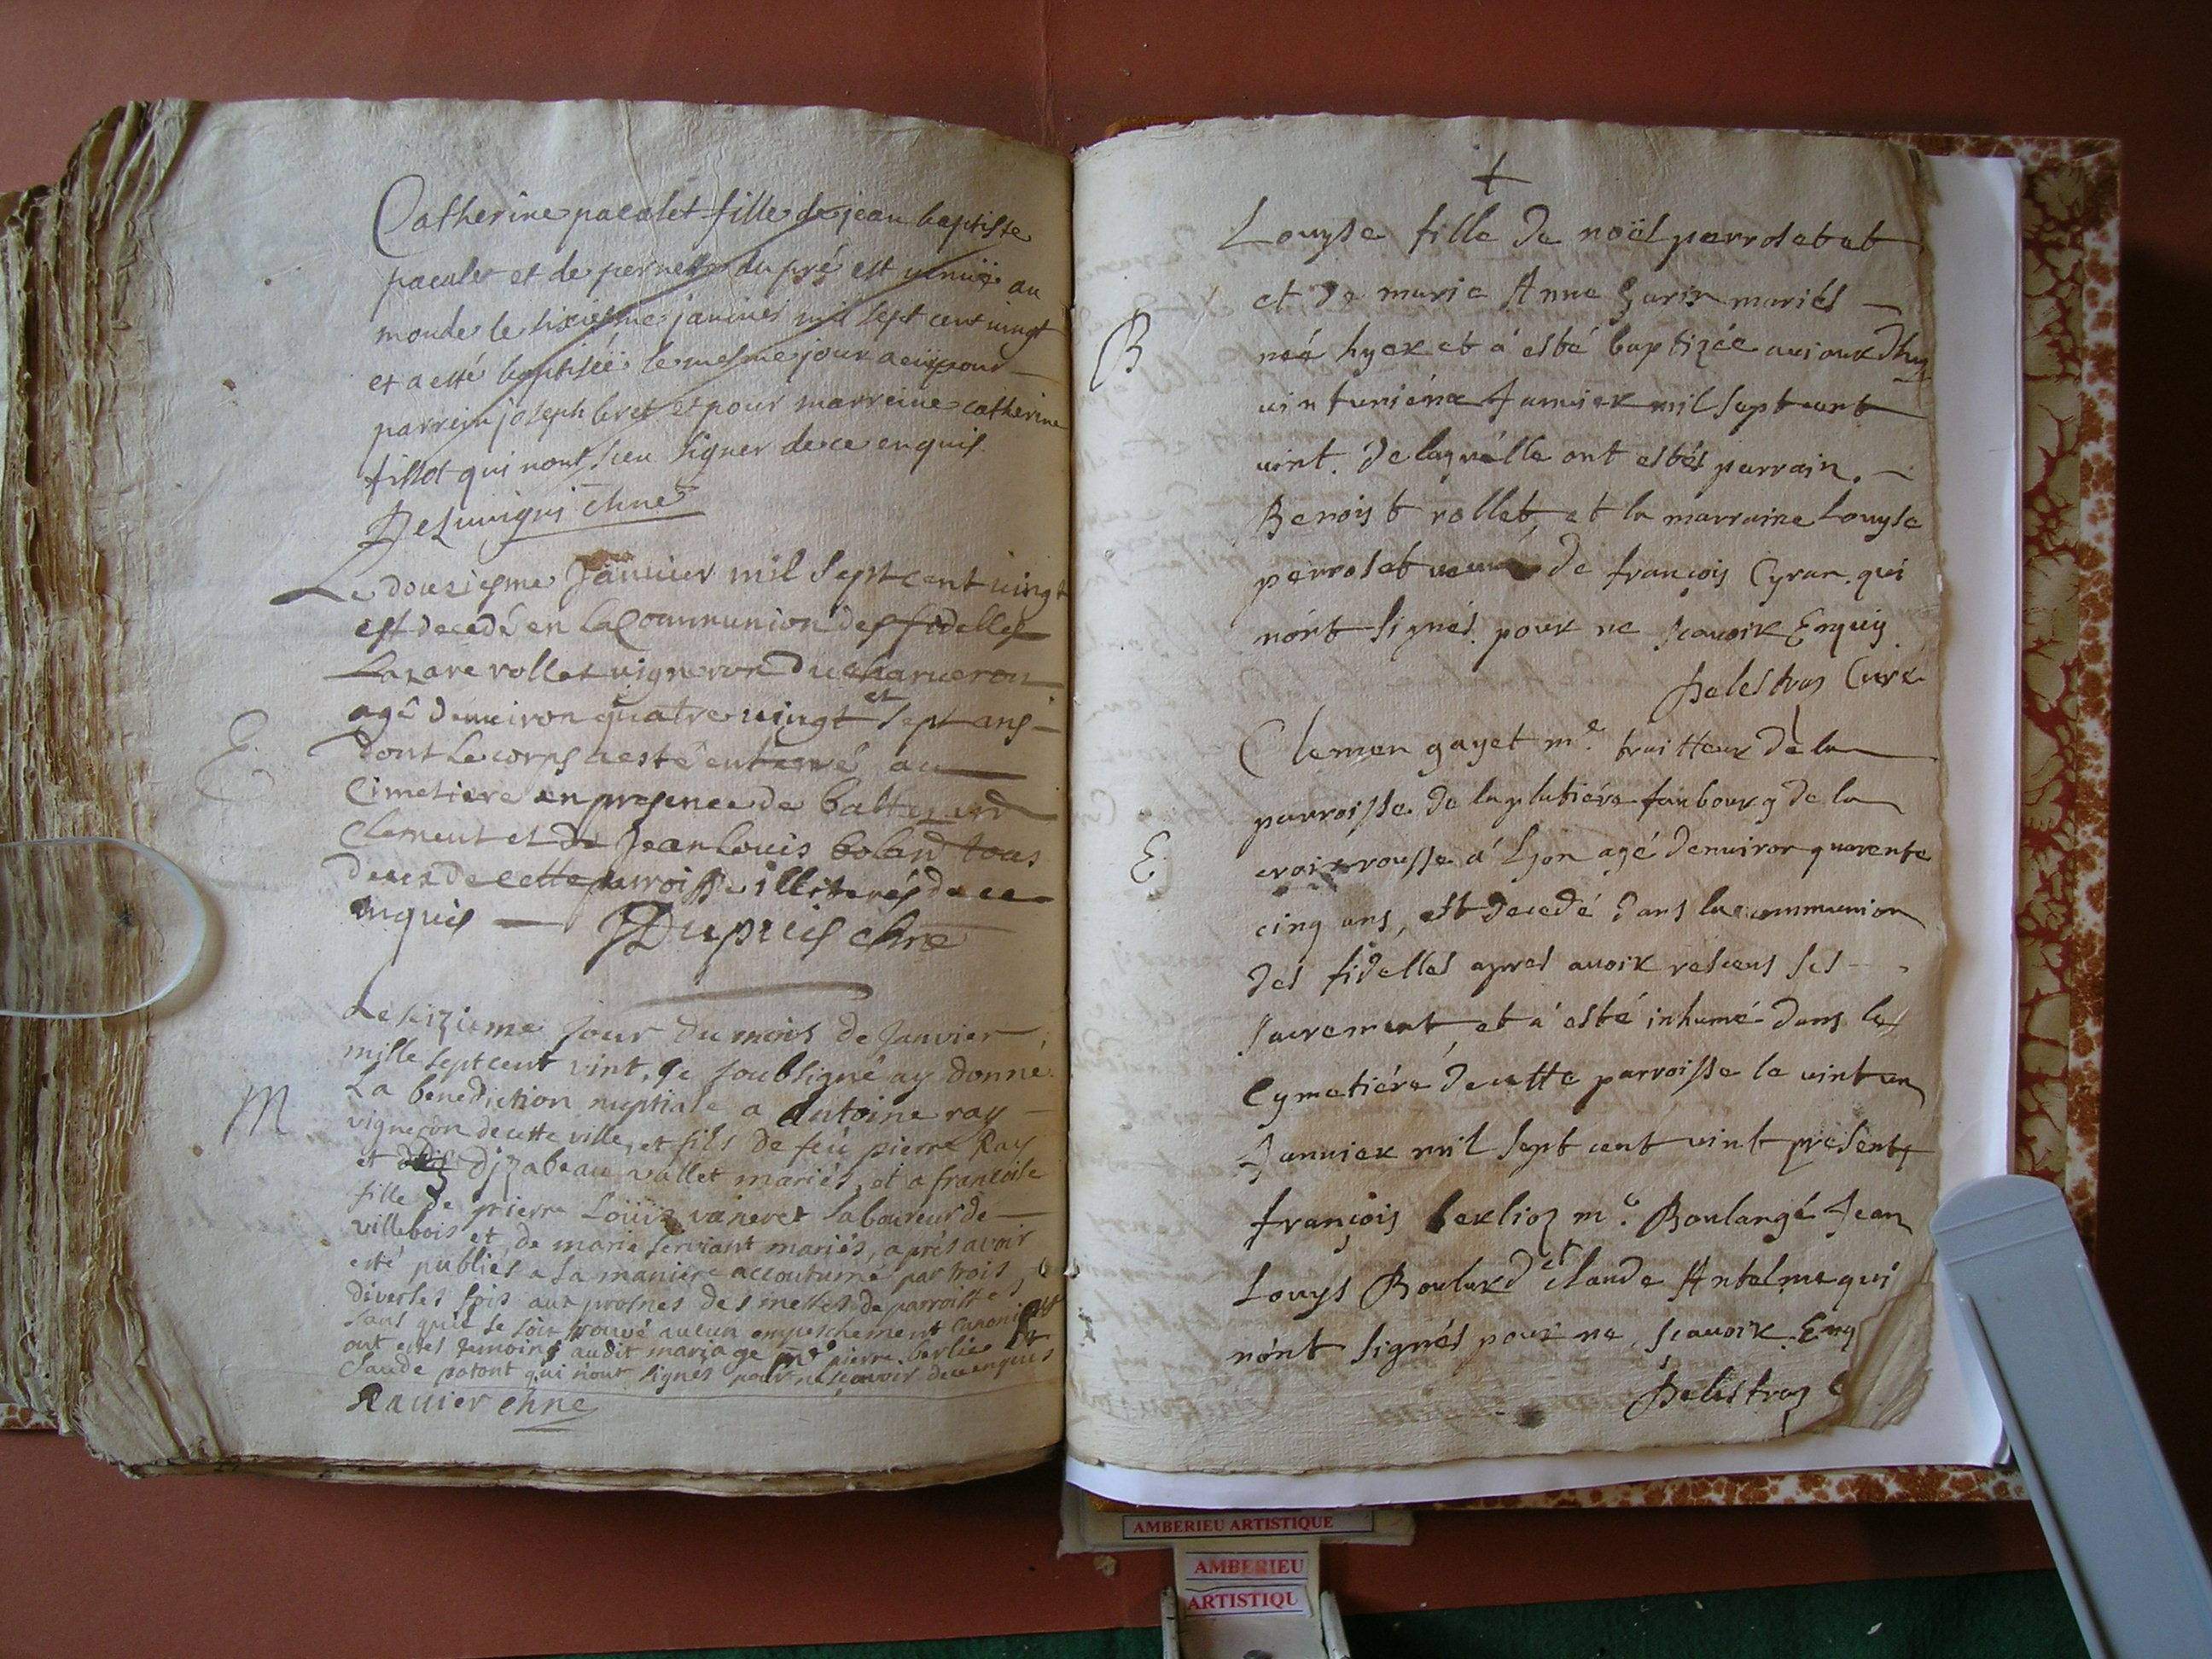 Catherine pacalet fille de jean baptiste
pacalet et de pernette du pré est venuë au
monde le sixiesme janvier mil sept cent vingt
et a esté baptisée le mesme jour a eü pour
parrein joseph bret et pour marreine catherine
fillot qui n'ont sceu signer de ce enquis
chne
Le dousiesme Janvier mil sept cent vingt
est decedé en la Communion des fidelles
Lazare rollet vigneron du charveron
agé denviron quatre vingt et sept ans
E.
dont le corps a esté enterré au
Cimetiere en presence de
Clement et de Jean louis bolard tous
deux de cette parroisse illiterés de ce
enquis Dupuis chne
Le seizieme jour du mois de Janvier
mille sept cent vint, je soubsigné ay donné
La benediction nuptiale a Antoine ray
M
vigneron de cette ville, et fils de feu pierre Ray
et dizabeau vallet mariés, et a francoise
fille de pierre Loüis vaneret laboureur de
villebois et de marie servant mariés, aprés avoir
esté publiés a la maniere accoutumé par trois
diverses fois aux prosnes des messes de parroisses
sans qu'il se soit trouvé aucun empeschement canonique
ont estés temoins audit mariage me pierre berlie et
Claude patont qui n'ont signés pour ne sçavoir de ce enquis
Ravier chne
Louyse fille de noël perroset et
et de marie Anne Garin mariés
B
née hyer et a esté baptizée aujourdhuy
vint uniéme Janvier mil sept cent
vint. de laquelle ont estés parrain.
Benoist rollet, et la marraine Louyse
perroset veuve de françois Cyran. qui
n'ont signés pour ne scavoir Enquis
Delestraz Curé
Clemen gayet me. traitteur de la
parroisse de la platiére faubourg de la
E
croix rousse a Lyon agé denviron quarente
cinq ans, est decedé dans la communion
des fidelles apres avoir resceus ses
sacrement, et a esté inhumé dans le
Cymetiére de cette parroisse le vint un
Janvier mil sept cent vint present
françois berlioz me. Boulangé Jean
Louys Boulard et claude Antelme qui
n'ont signés pour ne scavoir. Enq
Delestraz C
AMBERIEU ARTISTIQUE
AMBERIEU
ARTISTIQU